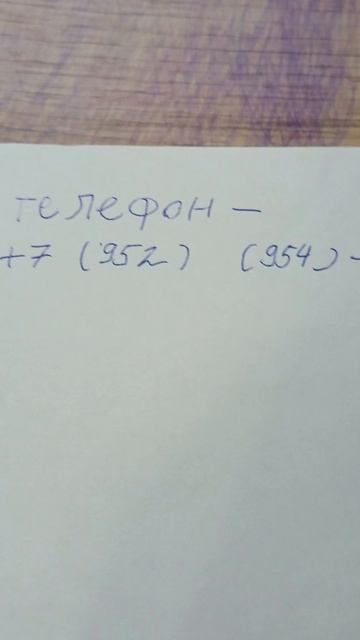 телефон -
+7 (952) (954) -